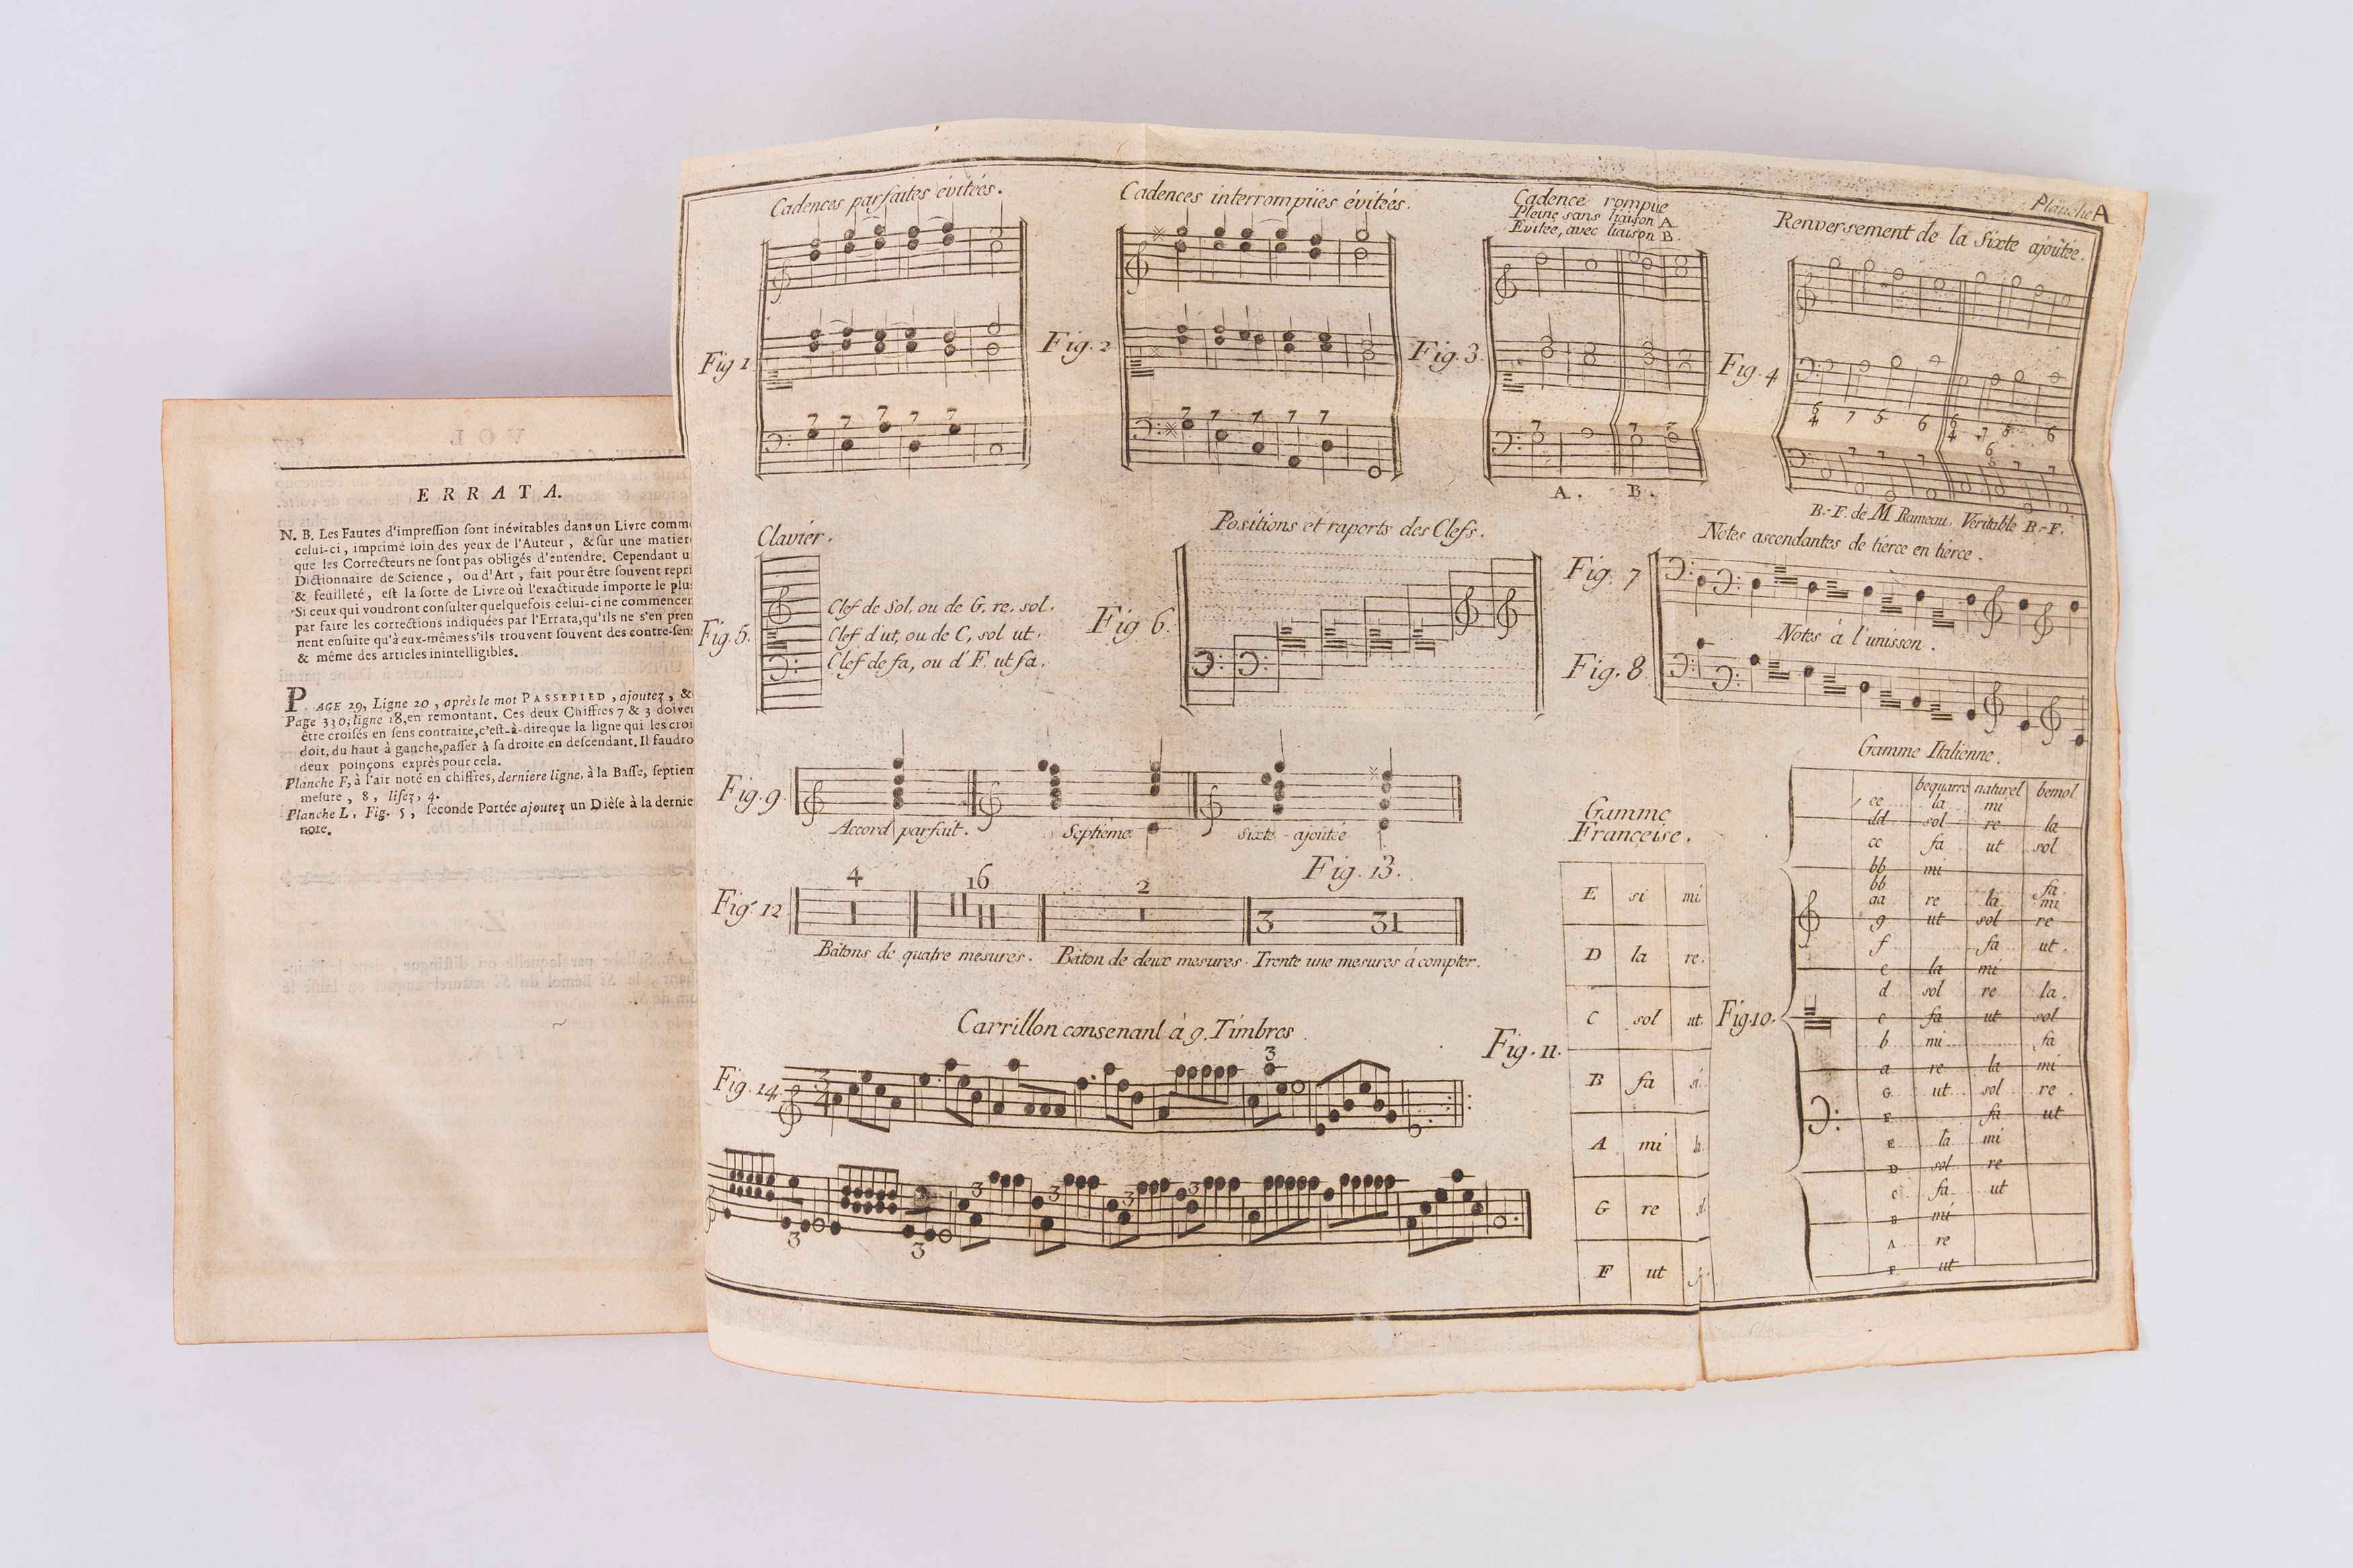 ERRATA.
N. B. Les Fautes d'impreſſion ſont inévitables dans un Livre comme
celui-ci, imprimé loin des yeux de l'Auteur, & ſur une matiere
que les Correcteurs ne ſont pas obligés d'entendre. Cependant u
Dictionnaire de Science, ou d'Art, fait pour être ſouvent repri
& feuilleté, eſt la ſorte de Livre où l'exactitude importe le plu
Si ceux qui voudront conſulter quelquefois celui-ci ne commencen
par faire les corrections indiquées par l'Errata, qu'ils ne s'en pren
nent enſuite qu'à eux-mêmes s'ils trouvent ſouvent des contre-ſen
& même des articles inintelligibles.
PAGE 29, Ligne 20, après le mot PASSEPIED, ajoutez, &
Page 330; ligne 18, en remontant. Ces deux Chiffres 7 & 3 doive
être croiſés en ſens contraire, c'eſt-à-dire que la ligne qui les croi
doit, du haut à gauche, paſſer à ſa droite en deſcendant. Il faudro
deux poinçons exprès pour cela.
Planche F, à l'air noté en chiffres, derniere ligne, à la Baſſe, ſeptiem
meſure, 8, liſez, 4.
Planche L, Fig. 5, ſeconde Portée ajoutez un Dièſe à la dernie
note.
Planche A
Cadences parfaites évitées.
Fig 1
7 7 7 7 7
Cadences interrompües évitées.
Fig. 2
7 7 7 7 7
Cadence rompue
Pleine sans liaison A
Evitée, avec liaison B.
Fig. 3.
7 7 7
A. B.
Renversement de la Sixte ajoûtée.
Fig. 4
B.-F. de M Rameau. Veritable B.-F.
Clavier.
Fig. 5.
Clef de Sol, ou de G, re, sol.
Clef d'ut, ou de C, sol ut.
Clef de fa, ou d'F ut fa.
Positions et raports des Clefs.
Fig 6.
Notes ascendantes de tierce en tierce.
Fig. 7
Notes à l'unisson.
Fig. 8
Fig. 9.
Accord parfait.
Septieme
Sixte-ajoûtée
Fig. 12
4
16
2
Fig. 13.
3 31
Batons de quatre mesures.
Baton de deux mesures.
Trente une mesures à compter.
Carrillon consenant à 9. Timbres.
Fig. 14.
3
4
3
3 3 3 3 3 3
Gamme
Françoise.
Fig. 11.
E si mi
D la re.
C sol ut.
B fa si
A mi
G re
F ut
Gamme Italienne.
Fig 10.
bequarre naturel bemol
ee la mi
dd sol re la
cc fa ut sol
bb mi
bb fa
aa re la mi
g ut sol re
f fa ut.
e la mi
d sol re la.
c fa ut sol
b mi fa
a re la mi
G ut sol re.
F fa ut
E la mi
D sol re
C fa ut
B mi
A re
ut